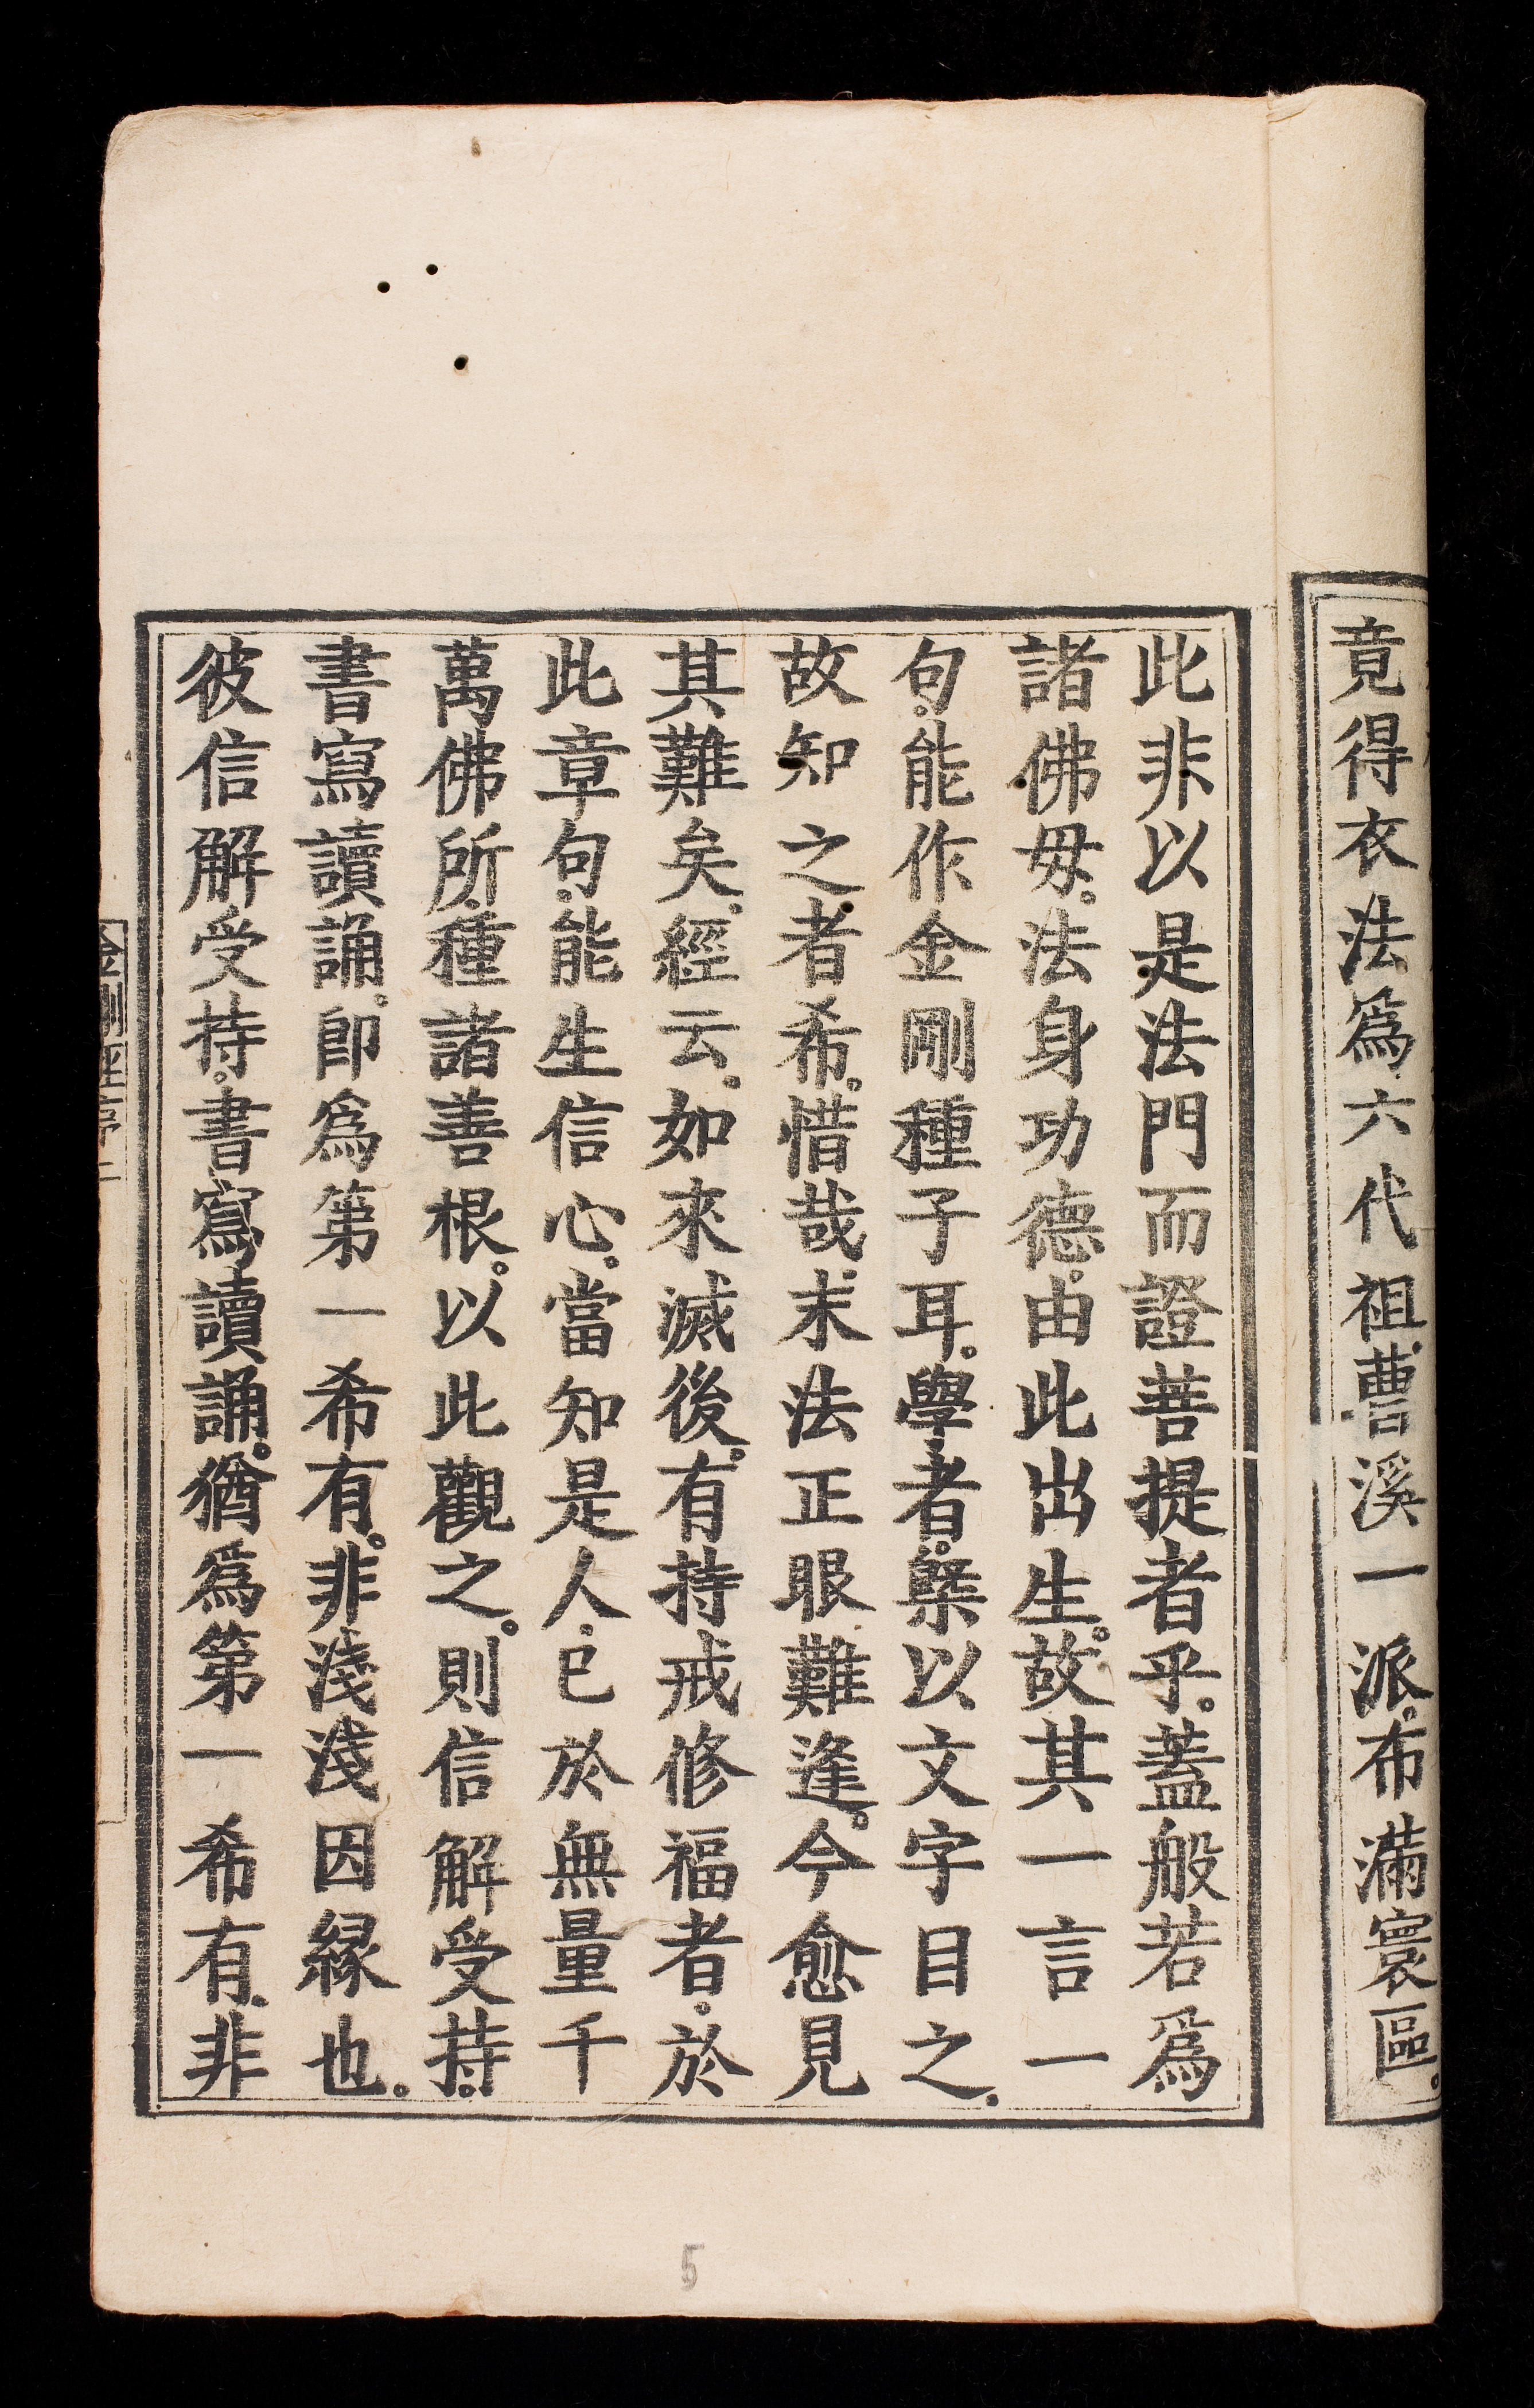 竟得衣法爲六代祖。曹溪一派。布滿寰區。
此非以是法門而證菩提者乎。蓋般若爲
諸佛母。法身功德。由此出生。故其一言一
句。能作金剛種子耳。學者。槩以文字目之。
故知之者希。惜哉。末法正眼難逢。今愈見
其難矣。經云。如來滅後。有持戒修福者。於
此章句。能生信心。當知是人。已於無量千
萬佛所。種諸善根。以此觀之。則信解受持。
書寫讀誦。卽爲第一希有。非淺淺因緣也。
彼信解受持。書寫讀誦。猶爲第一希有。非
5